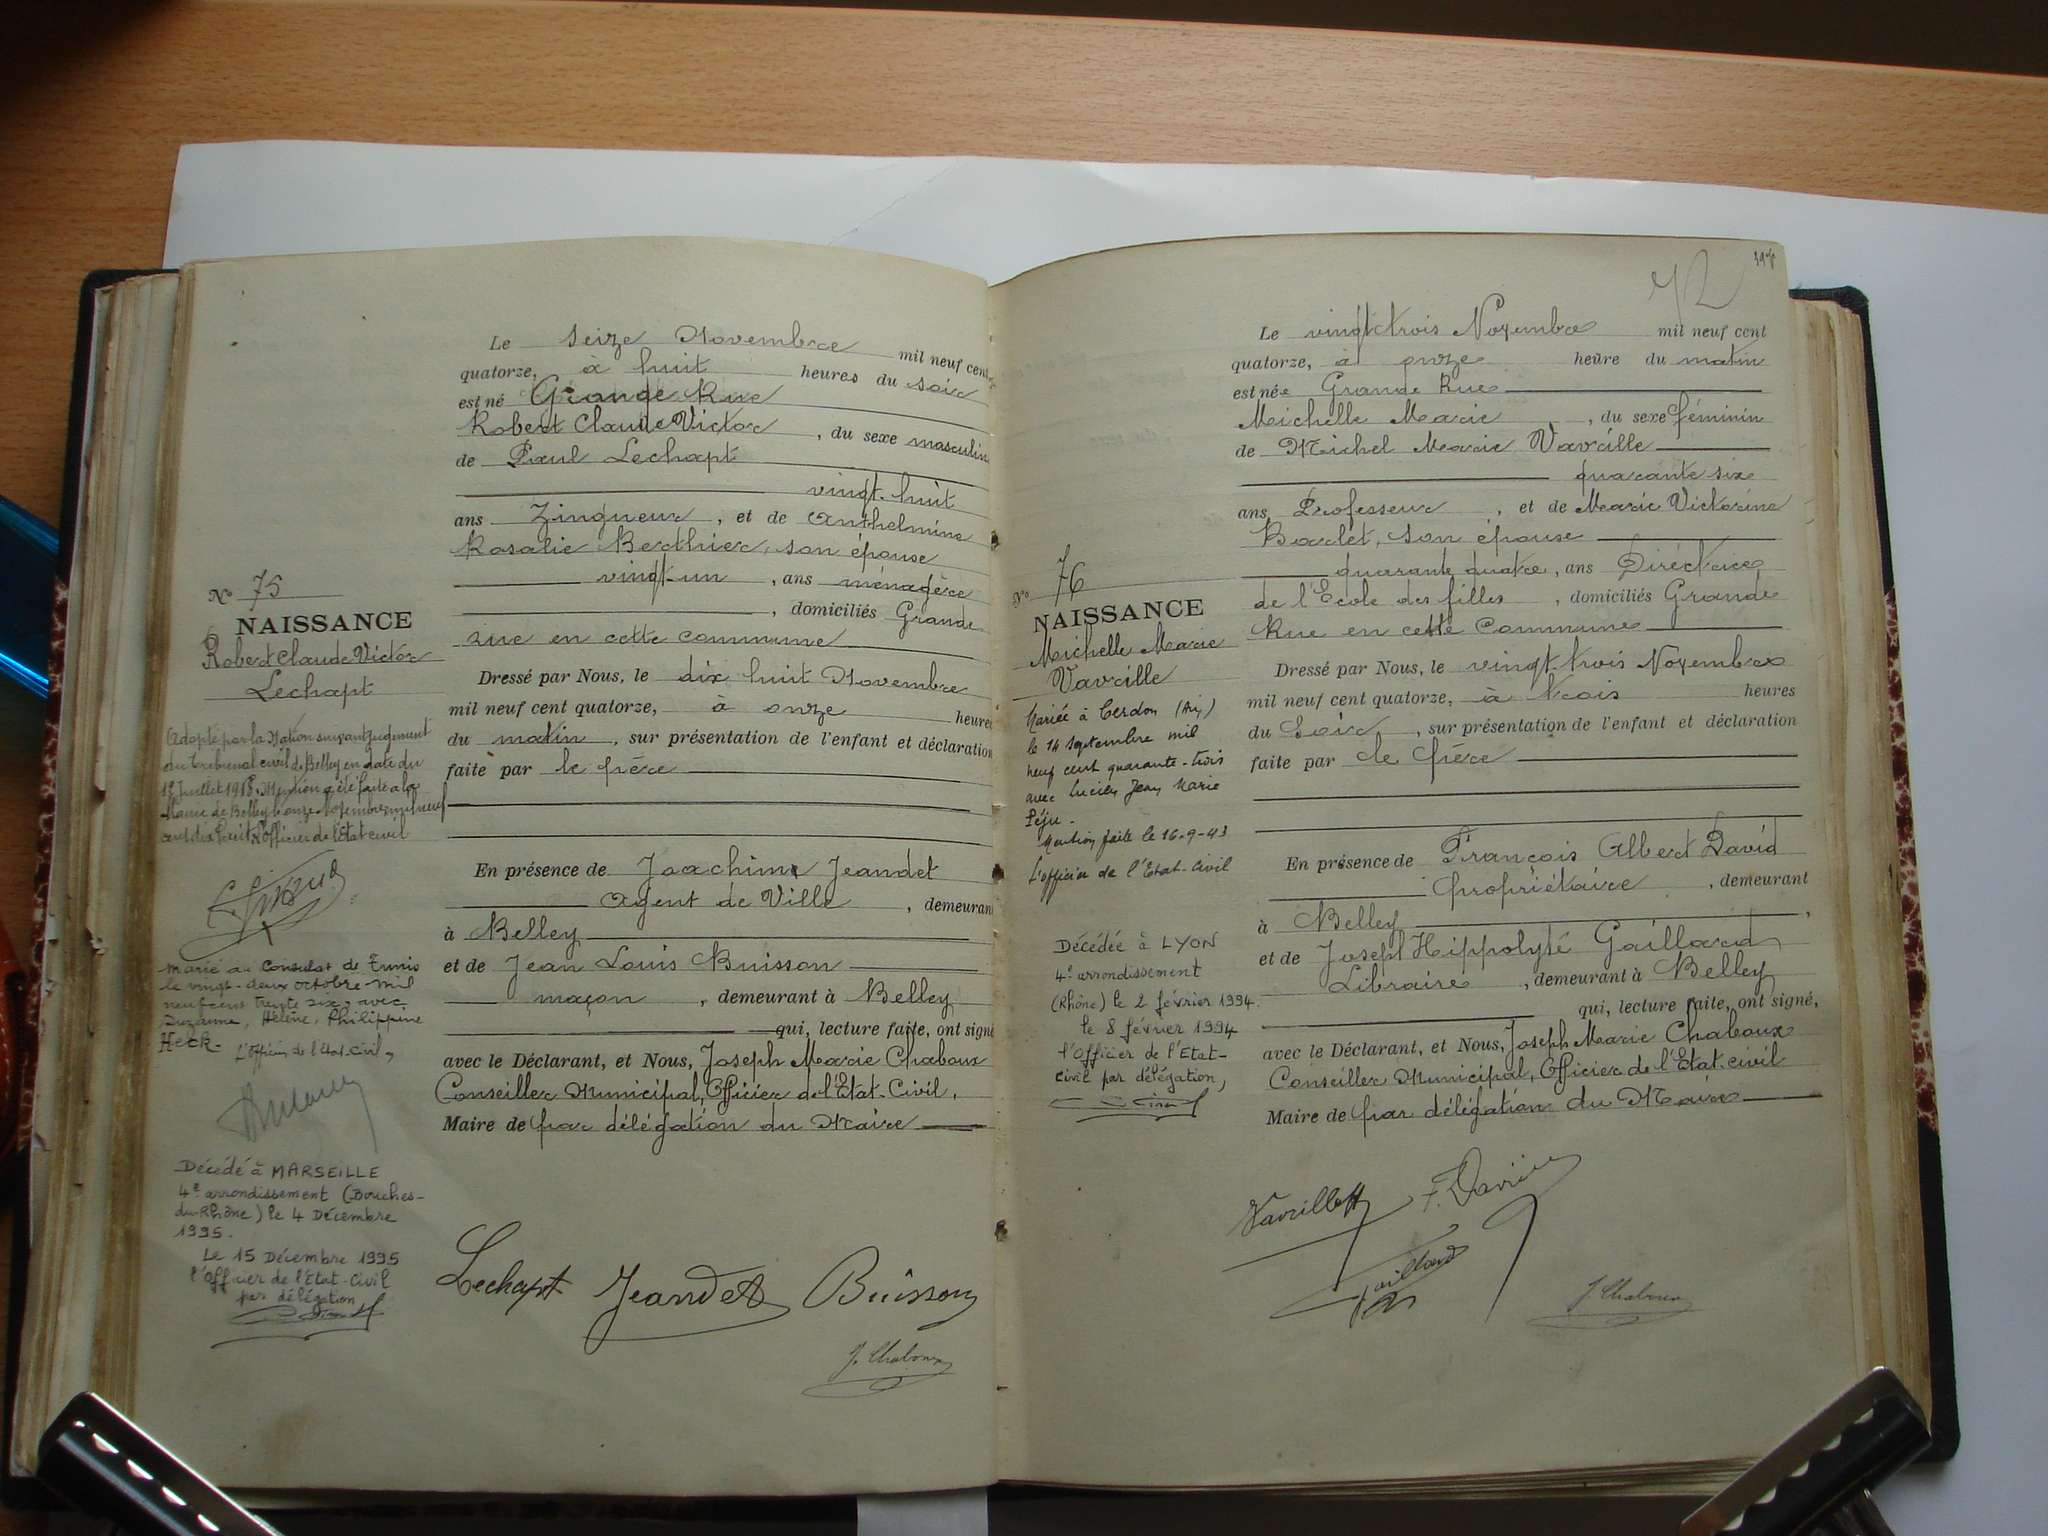 Le seize Novembre mil neuf cent
quatorze, à huit heures du soir
est né Grande Rue
Robert Claude Victor, du sexe masculin
de Paul Lechapt
vingt-huit
ans Zingueur, et de Anthelmine
Rosalie Berthier, son épouse
vingt-un, ans ménagère
, domiciliés Grande
rue en cette commune
Dressé par Nous, le dix huit Novembre
mil neuf cent quatorze, à onze heures
du matin, sur présentation de l'enfant et déclaration
faite par le père
En présence de Joachim Jeandet
Agent de Ville, demeurant
à Belley
et de Jean Louis Buisson
maçon, demeurant à Belley
qui, lecture faite, ont signé
avec le Déclarant, et Nous, Joseph Marie Chaboux
Conseiller Municipal, Officier de l'Etat-Civil,
Maire de par délégation du Maire
Lechapt Jeandet Buisson
J. Chaboux
No 75
NAISSANCE
Robert Claude Victor
Lechapt
Adopté par la Nation suivant jugement
du tribunal civil de Belley en date du
Juillet 1918. Mention a été faite à la
Mairie de Belley le onze Novembre mil neuf
cent dix huit. L'officier de l'Etat civil
Marié au Consulat de Tunis
le vingt-deux octobre mil
neuf cent trente six, avec
Suzanne, Hélène, Philippine
Heck.
L'officier de l'Etat-Civil,
Décédé à MARSEILLE
4e arrondissement (Bouches-
du-Rhône) le 4 Décembre
1995.
Le 15 Décembre 1995
l'Officier de l'Etat-Civil
par délégation
72
Le vingt trois Novembre mil neuf cent
quatorze, à onze heure du matin
est née Grande Rue
Michelle Marie, du sexe féminin
de Michel Marie Vavrille
quarante six
ans Professeur, et de Marie Victorine
Barlet, son épouse
quarante quatre, ans Directrice
de l'Ecole des filles, domiciliés Grande
Rue en cette Commune
Dressé par Nous, le vingt-trois Novembre
mil neuf cent quatorze, à trois heures
du Soir, sur présentation de l'enfant et déclaration
faite par le père
En présence de François Albert David
propriétaire, demeurant
à Belley,
et de Joseph Hippolyte Gaillard
Libraire, demeurant à Belley
qui, lecture faite, ont signé,
avec le Déclarant, et Nous, Joseph Marie Chaboux
Conseiller Municipal, Officier de l'Etat-civil
Maire de par délégation du Maire
F. David
Gaillard
J. Chaboux
No 76
NAISSANCE
Michelle Marie
Vavrille
Mariée à Cerdon (Ain)
le 14 septembre mil
neuf cent quarante-trois
avec Lucien Jean Marie
Péju.
Mention faite le 16-9-43
L'officier de l'Etat-Civil
Décédée à LYON
4e arrondissement
(Rhône) le 2 février 1994.
le 8 février 1994
l'Officier de l'Etat-
Civil par délégation,